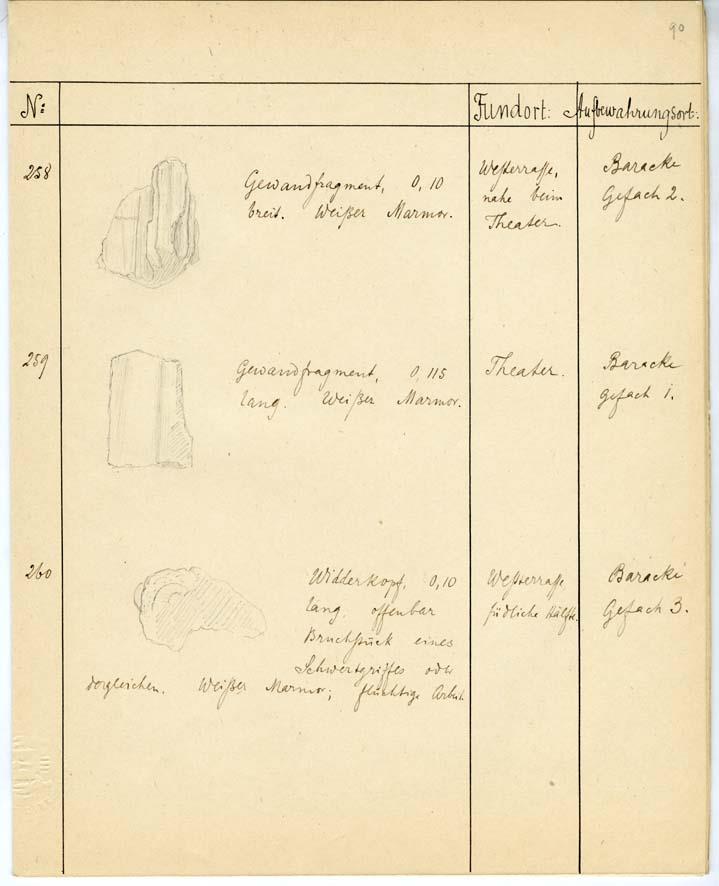 90
N: Fundort: Aufbewahrungsort:
258
Gewandfragment, 0,10
breit. Weißer Marmor.
Westerrasse,
nahe beim
Theater.
Baracke
Gefach 2.
259
Gewandfragment, 0,115
lang. Weißer Marmor.
Theater.
Baracke
Gefach 1.
260
Widderkopf, 0,10
lang. offenbar
Bruchstück eines
Schwertgriffes oder
dergleichen. Weißer Marmor; flüchtige Arbeit.
Westerrasse,
südliche Hälfte.
Baracke
Gefach 3.